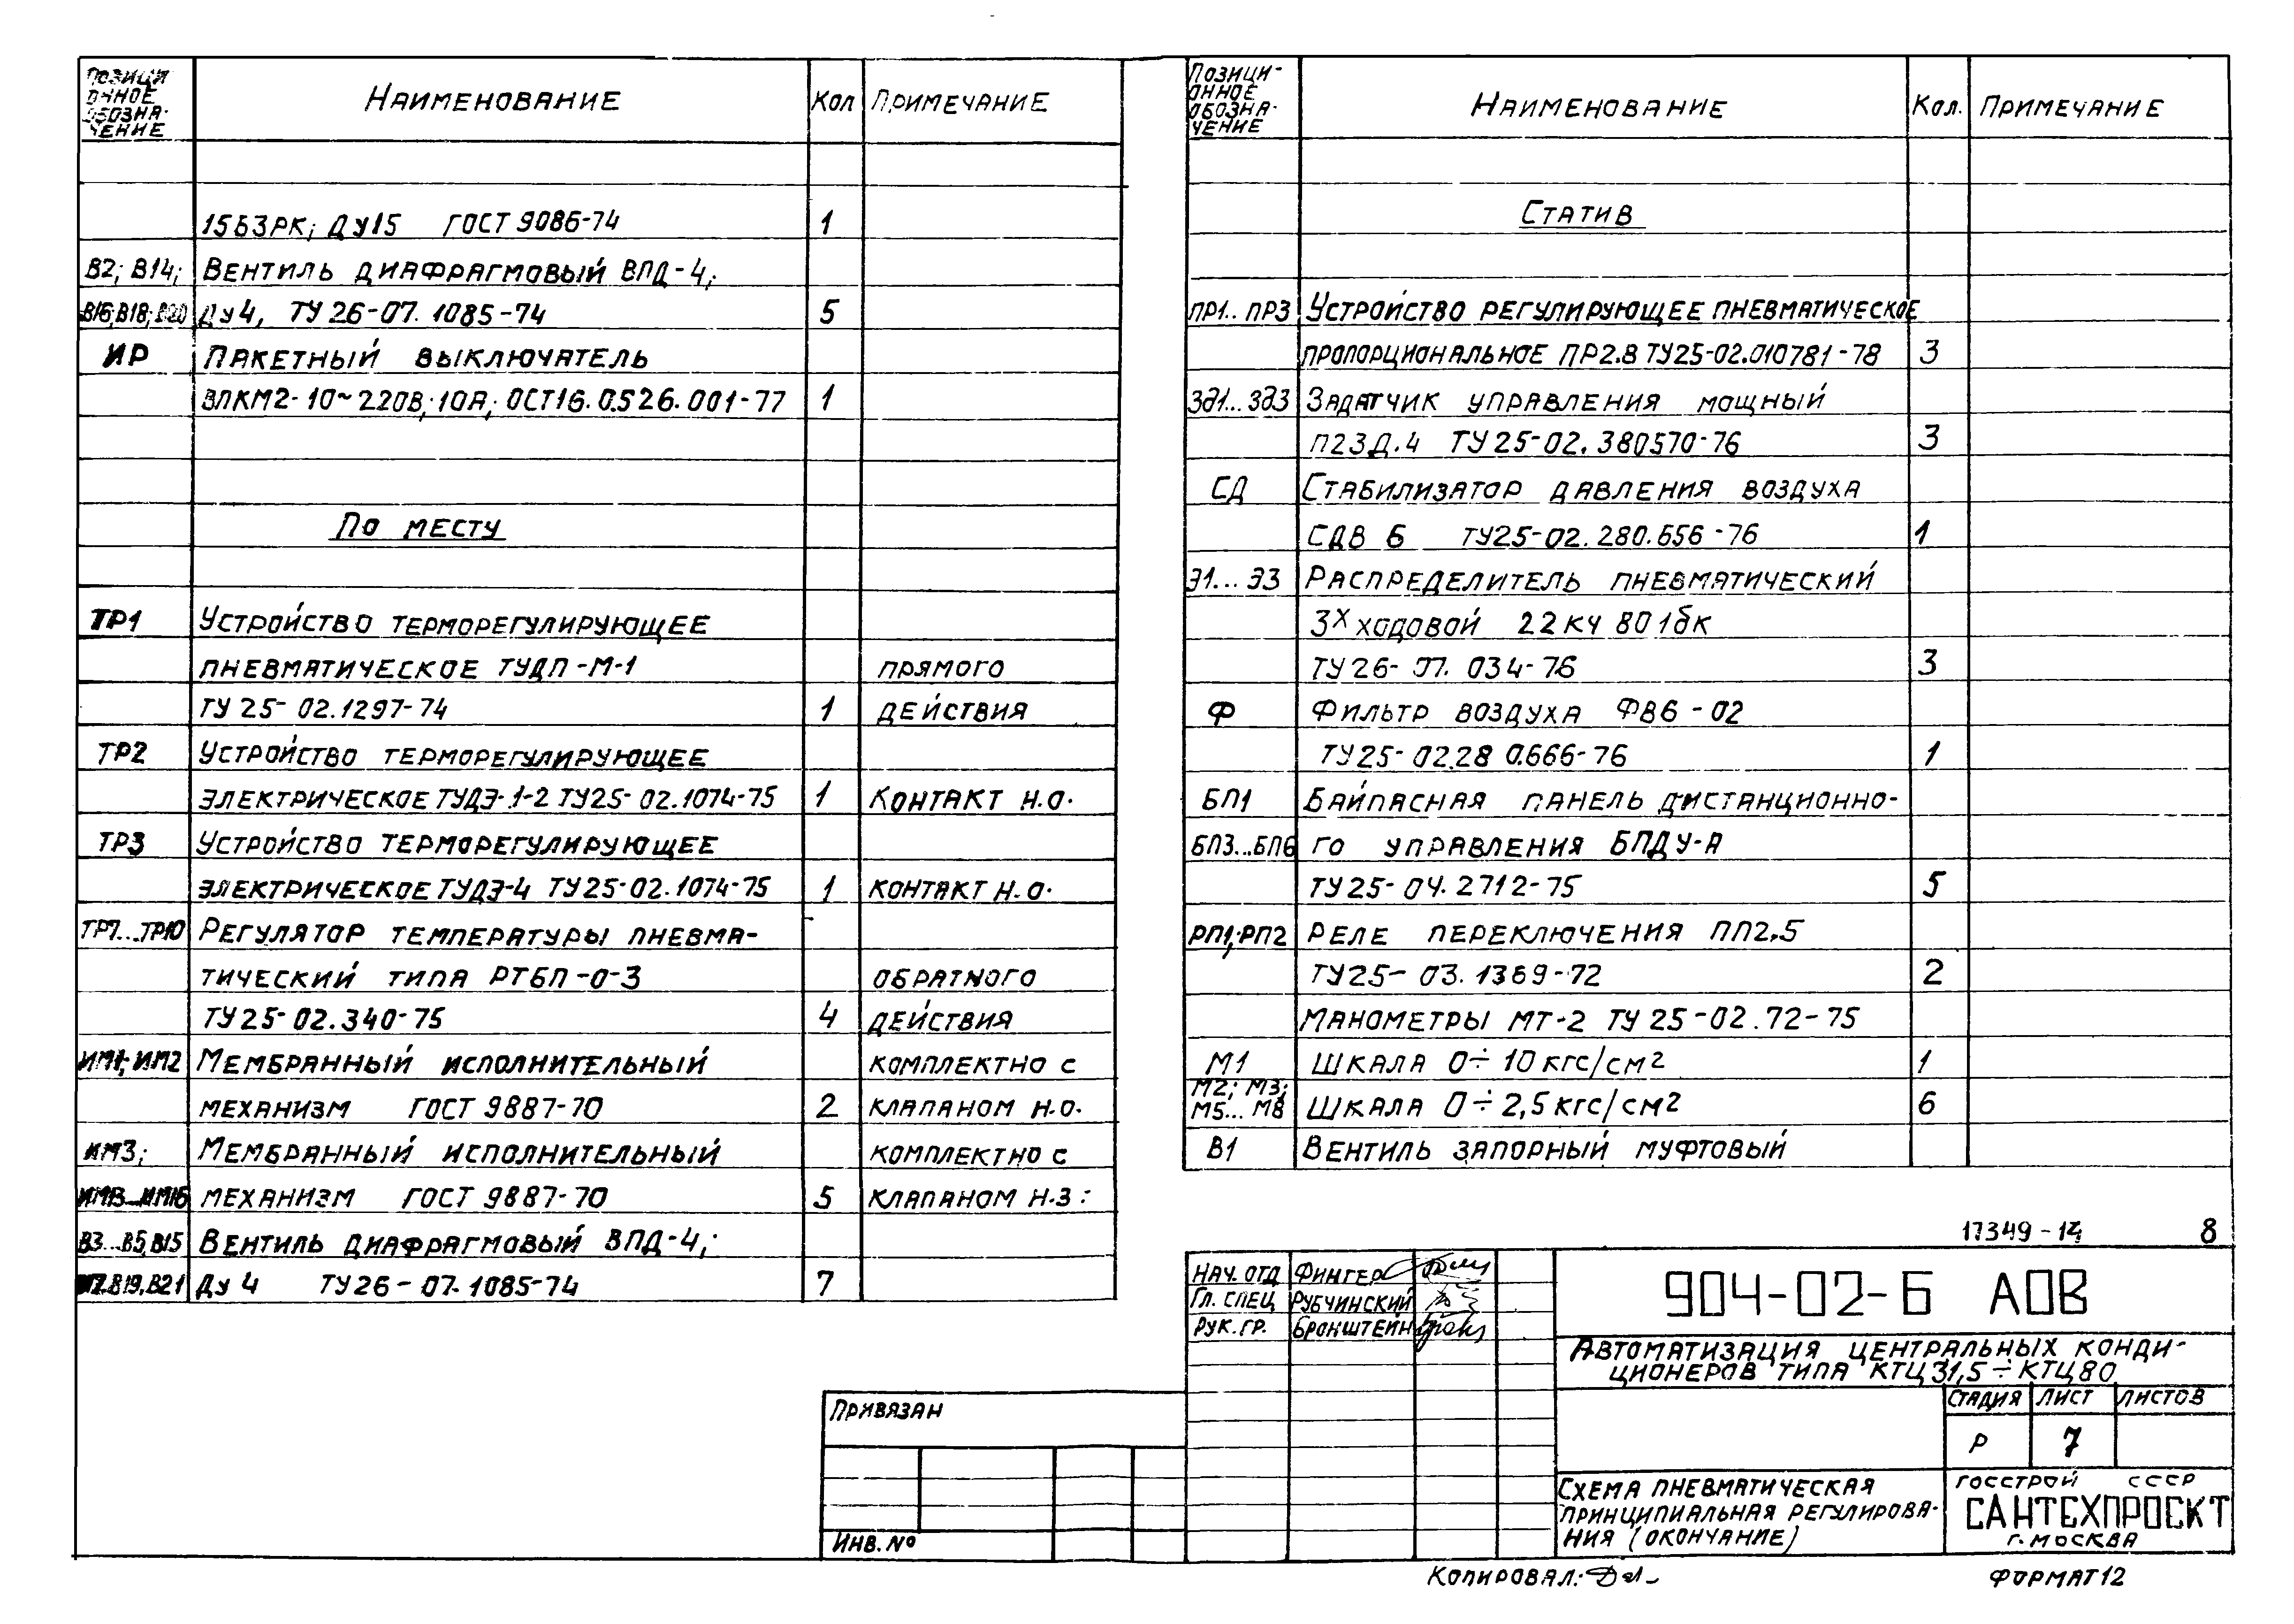 Позици
онное
обозна-
чение
Наименование
Кол
Примечание
15Б3РК; ДУ15 ГОСТ 9086-74 1
В2; В14; Вентиль диафрагмовый ВПД-4;
В16; В18; В20 Ду4, ТУ 26-07.1085-74 5
ИР Пакетный выключатель
ВПКМ2-10~220В; 10А; ОСТ16.0.526.001-77 1
По месту
ТР1 Устройство терморегулирующее
пневматическое ТУДП-М-1 прямого
ТУ 25-02.1297-74 1 действия
ТР2 Устройство терморегулирующее
электрическое ТУДЭ-1-2 ТУ25-02.1074-75 1 контакт н.о.
ТР3 Устройство терморегулирующее
электрическое ТУДЭ-4 ТУ25-02.1074-75 1 контакт н.о.
ТР7...ТР10 Регулятор температуры пневма-
тический типа РТБП-0-3 обратного
ТУ 25-02.340-75 4 действия
ИМ1; ИМ2 Мембранный исполнительный комплектно с
механизм ГОСТ 9887-70 2 клапаном н.о.
ИМ3; Мембранный исполнительный комплектно с
ИМ13...ИМ16 механизм ГОСТ 9887-70 5 клапаном н.з.
В3...В5, В15 Вентиль диафрагмовый ВПД-4;
В19, В21 Ду 4 ТУ26-07.1085-74 7
Позици-
онное
обозна-
чение
Наименование
Кол.
Примечание
Статив
ПР1..ПР3 Устройство регулирующее пневматическое
пропорциональное ПР2.8 ТУ25-02.010781-78 3
Зд1...Зд3 Задатчик управления мощный
П23Д.4 ТУ 25-02.380570-76 3
СД Стабилизатор давления воздуха
СДВ 6 ТУ25-02.280.656-76 1
Э1...Э3 Распределитель пневматический
3х ходовой 22кч 801бк
ТУ 26-07.034-76 3
Ф Фильтр воздуха ФВ6-02
ТУ 25-02.28 0.666-76 1
БП1 Байпасная панель дистанционно-
БП3...БП6 го управления БПДУ-А
ТУ 25-04.2712-75 5
РП1; РП2 Реле переключения ПП2.5
ТУ25-03.1369-72 2
Манометры МТ-2 ТУ 25-02.72-75
М1 шкала 0÷10 кгс/см2 1
М2; М3;
М5...М8 шкала 0÷2,5 кгс/см2 6
В1 Вентиль запорный муфтовый
17349-14 8
Нач. отд Фингер
Гл. спец Рубчинский
Рук. гр. Бронштейн
904-02-Б АОВ
Автоматизация центральных конди-
ционеров типа КТЦ31,5÷КТЦ80
Стадия Лист Листов
Р 7
Схема пневматическая
принципиальная регулирова-
ния (окончание)
Госстрой СССР
САНТЕХПРОЕКТ
г. Москва
Привязан
Инв. №
Копировал:
Формат 12